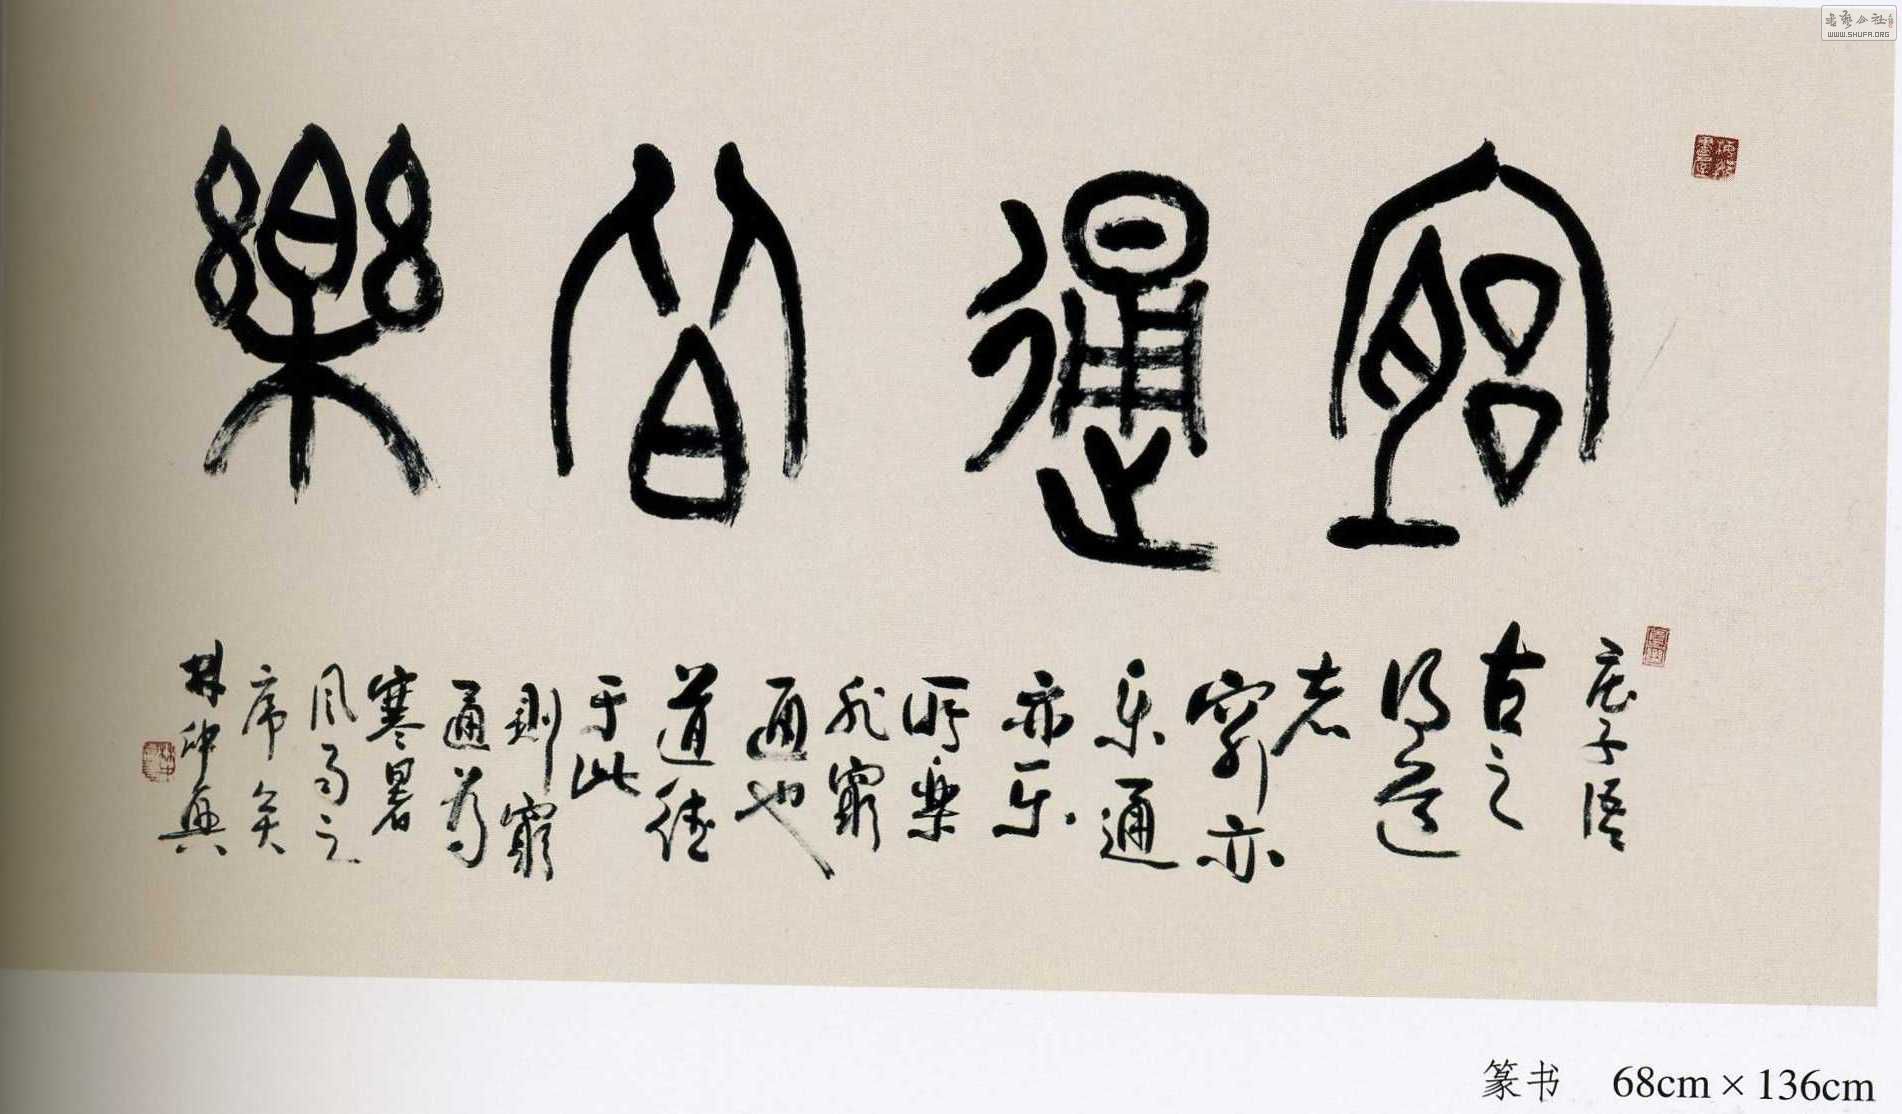 窮通皆樂
庄子语
古之
得道
者
穷亦
乐通
亦乐
所樂
非窮
通也
道德
于此
则窮
通为
寒暑
风雨之
序矣
林仲興
篆书 68cm × 136cm
书艺公社
WWW.SHUFA.ORG